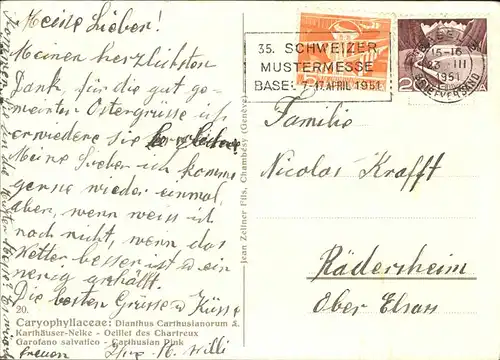 Meine Lieber!
Meinen herzlichsten
Dank, für die gut ge-
meinten Ostergrüsse ich
erwiedere sie
Meine Lieber ich komme
gerne wieder einmal,
aber, wenn weiss ich
noch nicht, wenn das
Wetter besser ist u ein
wenig
Die besten Grüsse u Küsse
20.
Caryophyllaceae: Dianthus Carthusianorum L.
Karthäuser-Nelke - Oeillet des Chartreux
Garofano salvatico - Carthusian Pink
freuen
Jean Zellner Fils, Chambésy (Genève)
35. SCHWEIZER
MUSTERMESSE
BASEL 7-17. APRIL 1951
BASEL
15-16
23 III
1951
BRIEFVERSAND
20
Familie
Nicolas Krafft
Rädersheim
Ober Elsass